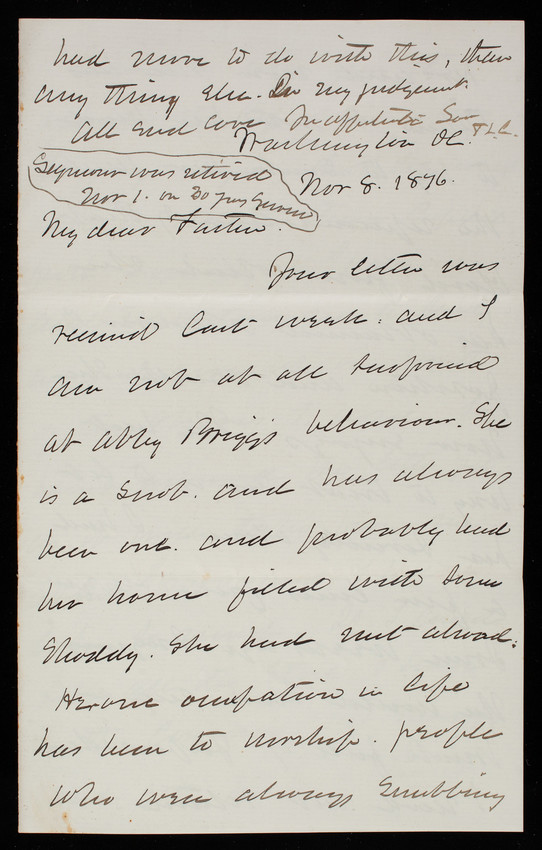 had more to do with this, than
any thing else. In my judgement.
All send love Yr affectionate Son
T.L.C.
Washington DC.
Nov 8. 1876.
Seymour was retired
Nov 1. on 30 years Service
My dear Father.
Your letter was
received last week. and I
am not at all surprised
at Abby Briggs behaviour. She
is a Snob. and has always
been one. and probably had
her house filled with some
Shoddy. She had met abroad.
Her one occupation in life
has been to worship. people
who were always Snubbing